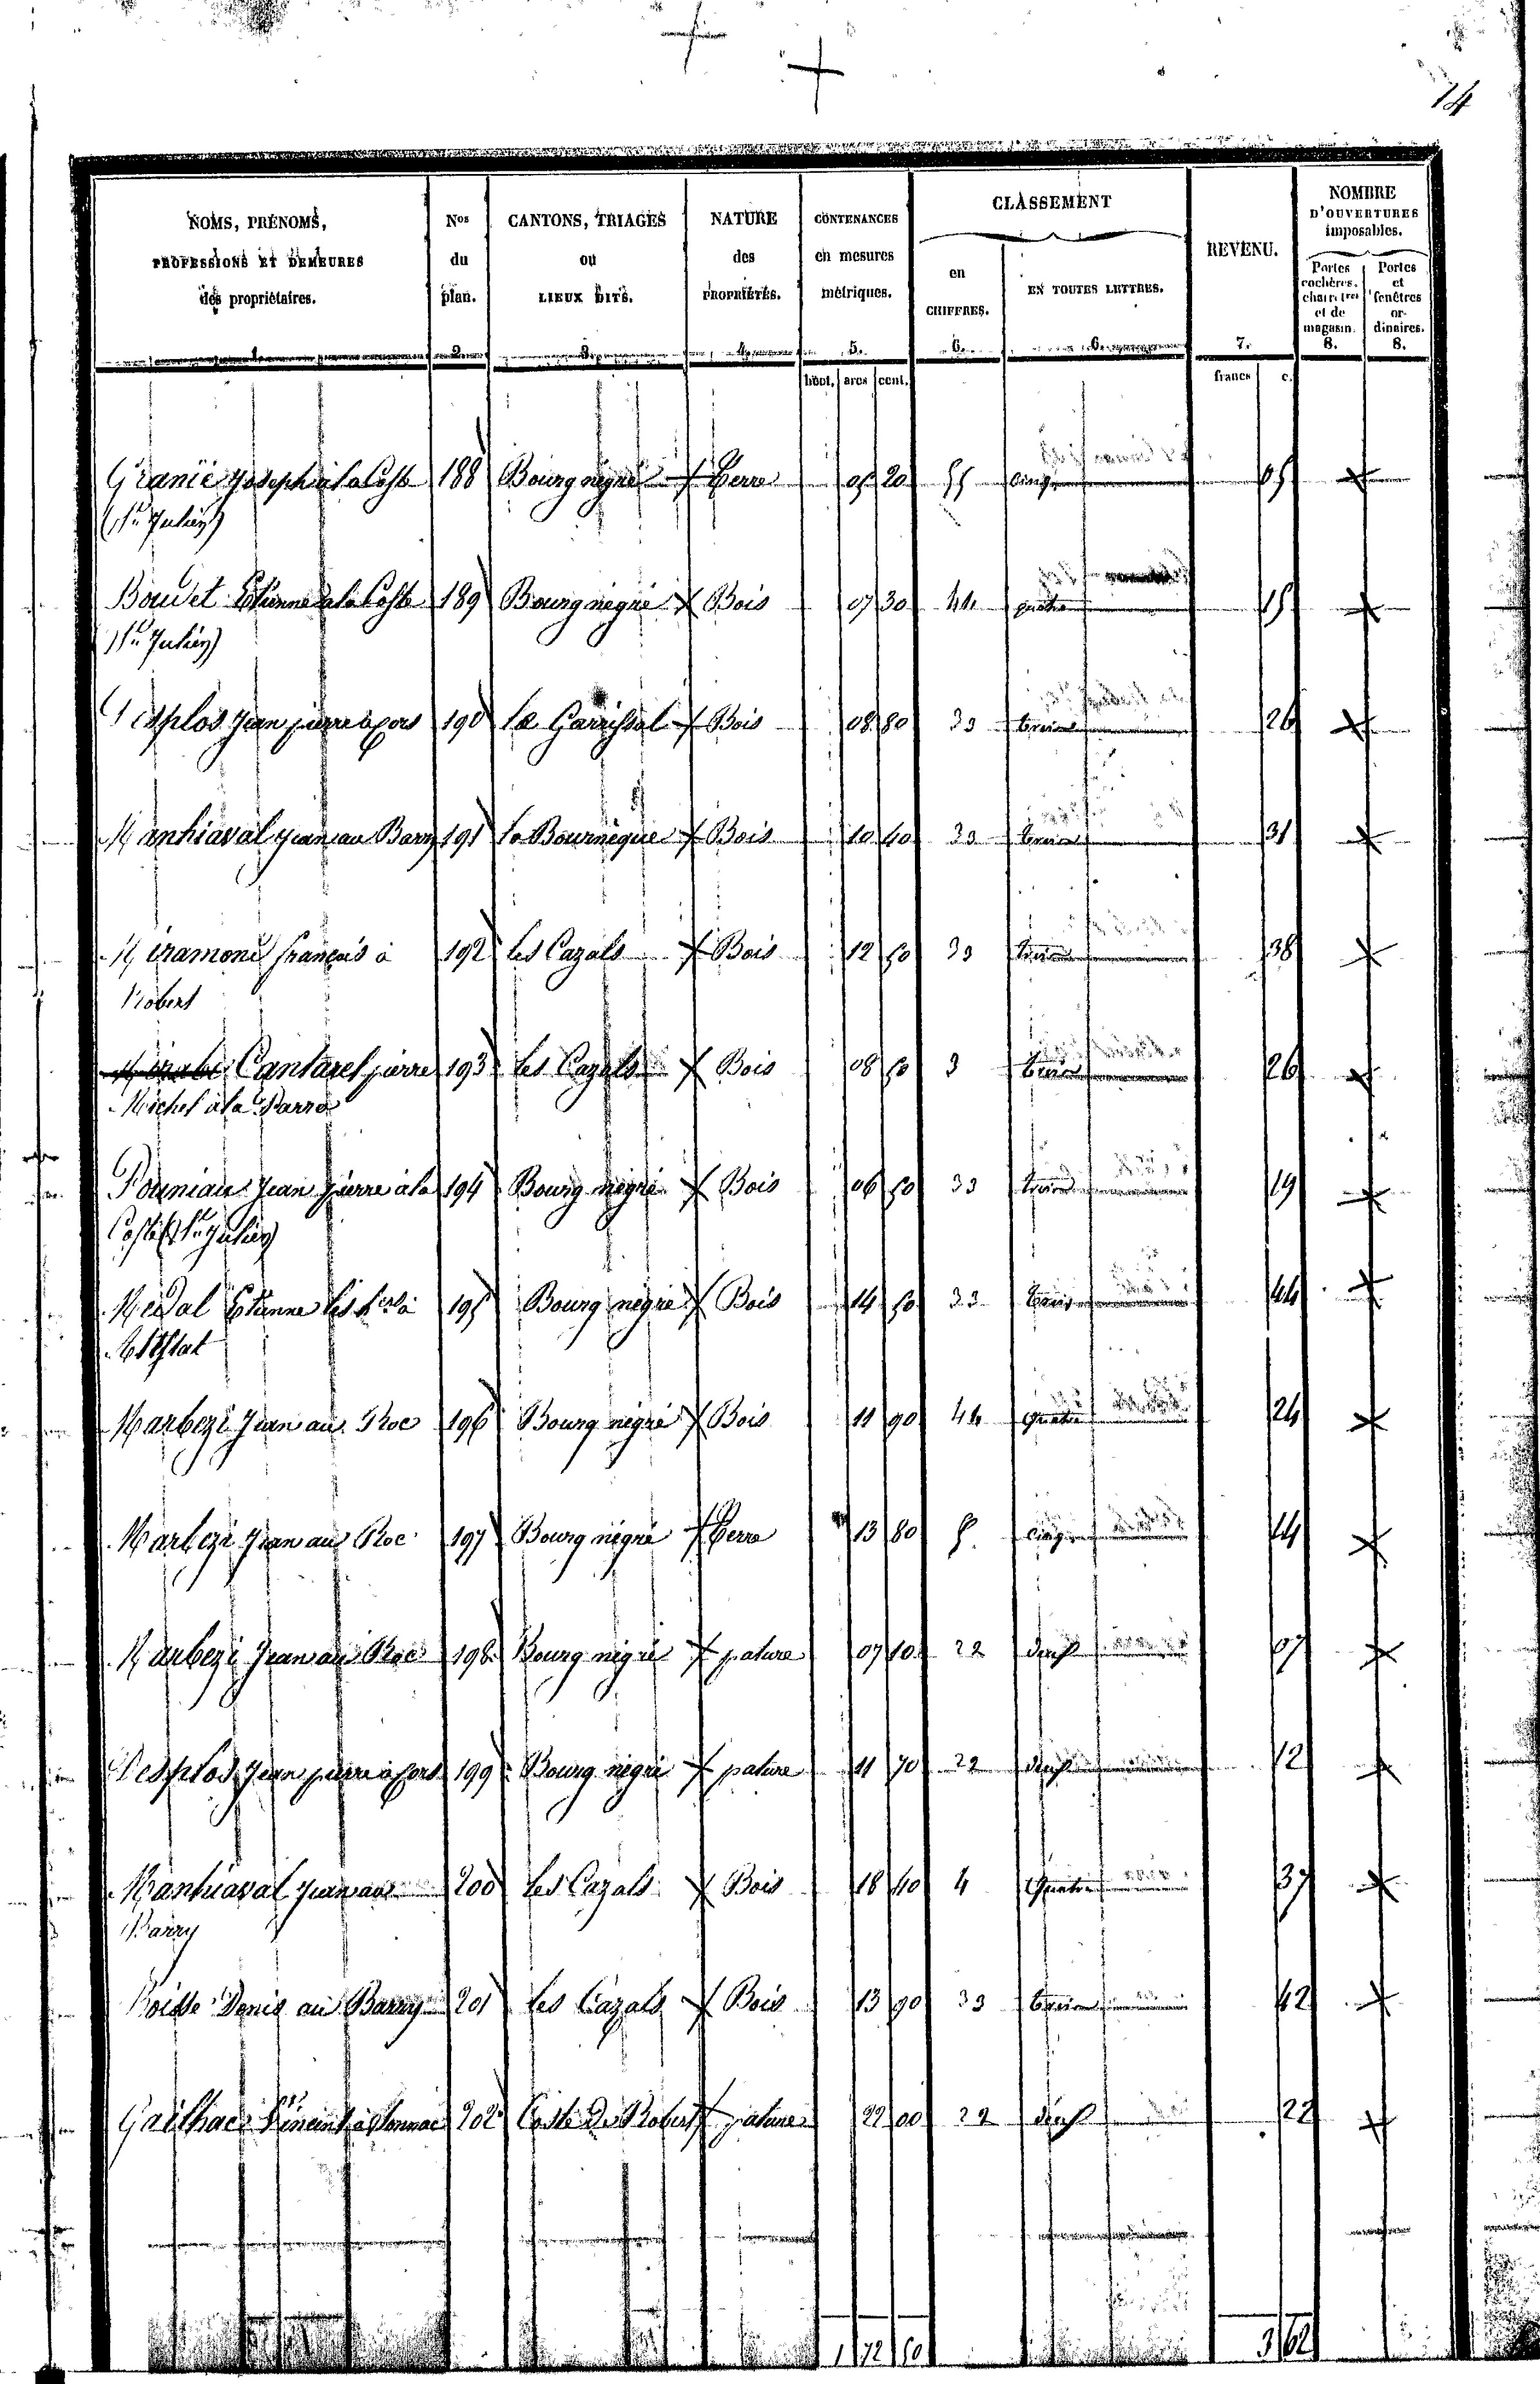 14
NOMS, PRÉNOMS, PROFESSIONS ET DEMEURES des propriétaires. | Nos du plan. | CANTONS, TRIAGES ou LIEUX DITS. | NATURE des PROPRIÉTÉS. | CONTENANCES en mesures métriques. | CLASSEMENT en CHIFFRES. | EN TOUTES LETTRES. | REVENU. | NOMBRE D'OUVERTURES imposables. Portes et fenêtres ordinaires.
1. 2. 3. 4. 5. 6. 6. 7. 8. 8.
hect. ares cent. francs c.
Granié Joseph à la Coste 188 Bourg négrié Terre 05 20 55 cinq 05
(St Julien)
Boudet Etienne à la Coste 189 Bourg négrié Bois 07 30 44 quatre 15
(St Julien)
Desplos Jean pierre à fors 190 Bois 08 80 33 trois 26
Manhiaval Jean au Barry 191 la Bournègue Bois 10 40 33 trois 31
Miramond françois à 192 les Cazals Bois 12 50 33 trois 38
Robert
Cantaret pierre 193 les Cazals Bois 08 50 3 trois 26
Michel à la Parro
Jean pierre à la 194 Bourg négrié Bois 06 50 33 trois 19
Coste (St Julien)
Médal Etienne les à 195 Bourg négrié Bois 14 50 33 trois 44
Marbezi Jean au Roc 196 Bourg négrié Bois 11 90 44 quatre 24
Marbezi Jean au Roc 197 Bourg négrié Terre 13 80 5 cinq 14
Marbezi Jean au Roc 198 Bourg négrié pature 07 10 22 deux 07
Desplos Jean pierre à fors 199 Bourg négrié pature 11 70 22 deux 12
Manhiaval Jean au 200 les Cazals Bois 18 40 4 quatre 37
Barry
Boisse Denis au Barry 201 les Cazals Bois 13 90 33 trois 42
Gailhac 202 Coste de Robert pature 22 00 22 deux 22
1 72 50 3 62